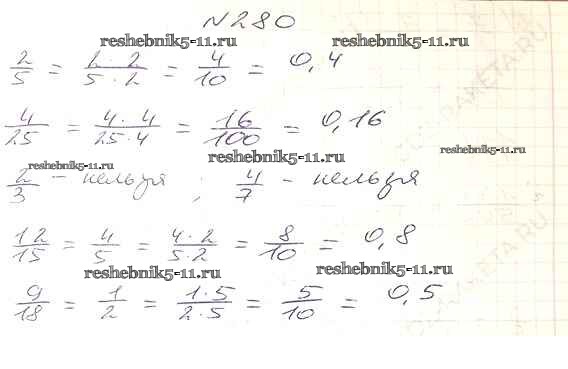 №280
reshebnik5-11.ru reshebnik5-11.ru
2/5 = 2·2/5·2 = 4/10 = 0,4
4/25 = 4·4/25·4 = 16/100 = 0,16
reshebnik5-11.ru reshebnik5-11.ru reshebnik5-11.ru
2/3 - нельзя ; 4/7 - нельзя
12/15 = 4/5 = 4·2/5·2 = 8/10 = 0,8
reshebnik5-11.ru reshebnik5-11.ru
9/18 = 1/2 = 1·5/2·5 = 5/10 = 0,5